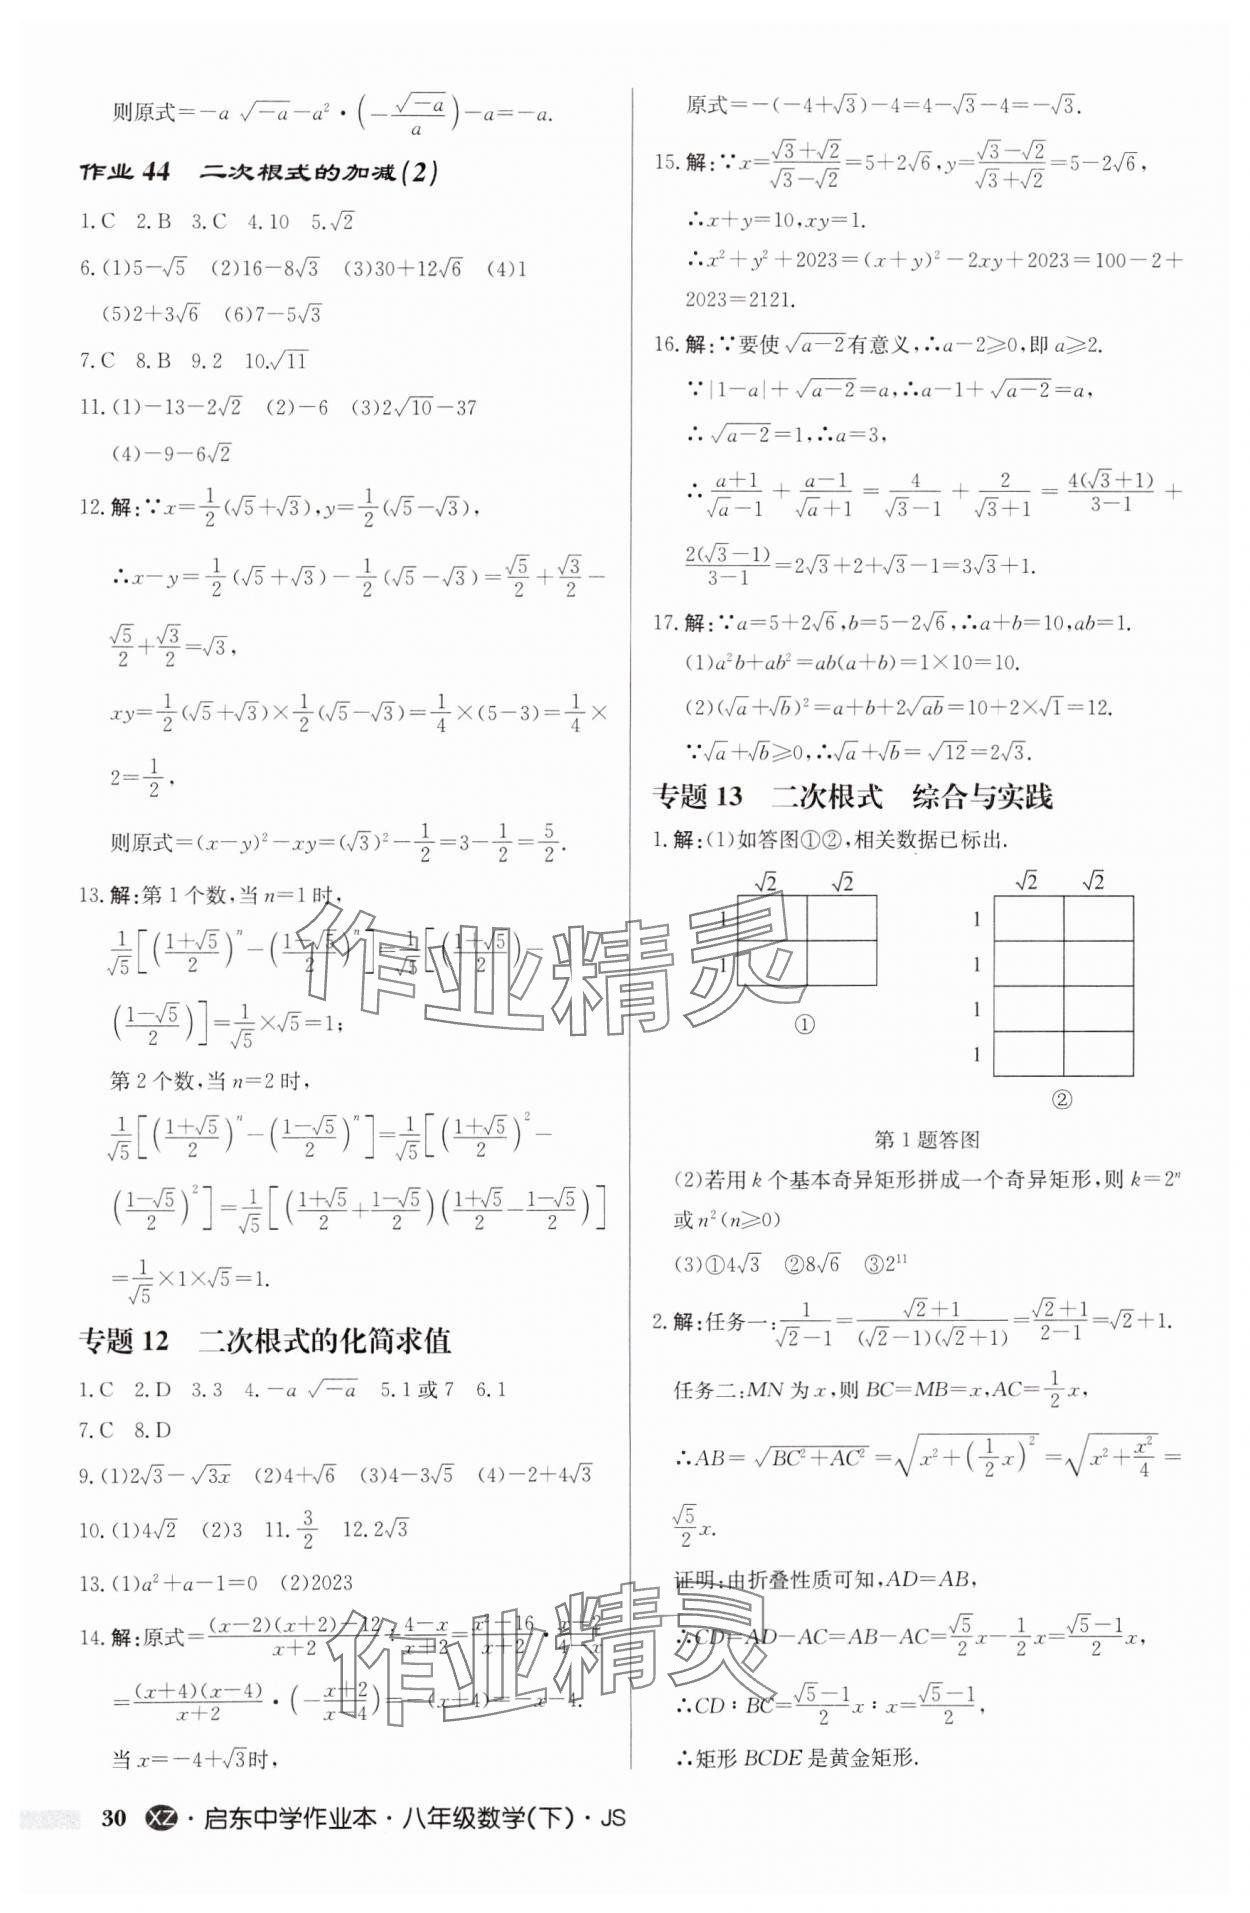 则原式=-a√(-a)-a²·(-√(-a)/a)-a=-a.
作业 44 二次根式的加减(2)
1.C 2.B 3.C 4.10 5.√2
6.(1)5-√5 (2)16-8√3 (3)30+12√6 (4)1
(5)2+3√6 (6)7-5√3
7.C 8.B 9.2 10.√11
11.(1)-13-2√2 (2)-6 (3)2√10-37
(4)-9-6√2
12.解:∵x=1/2(√5+√3),y=1/2(√5-√3),
∴x-y=1/2(√5+√3)-1/2(√5-√3)=√5/2+√3/2-
√5/2+√3/2=√3,
xy=1/2(√5+√3)×1/2(√5-√3)=1/4×(5-3)=1/4×
2=1/2,
则原式=(x-y)²-xy=(√3)²-1/2=3-1/2=5/2.
13.解:第1个数,当n=1时,
1/√5[((1+√5)/2)ⁿ-((1-√5)/2)ⁿ]=1/√5[((1+√5)/2)-
((1-√5)/2)]=1/√5×√5=1;
第2个数,当n=2时,
1/√5[((1+√5)/2)ⁿ-((1-√5)/2)ⁿ]=1/√5[((1+√5)/2)²-
((1-√5)/2)²]=1/√5[((1+√5)/2+(1-√5)/2)((1+√5)/2-(1-√5)/2)]
=1/√5×1×√5=1.
专题 12 二次根式的化简求值
1.C 2.D 3.3 4.-a√(-a) 5.1或7 6.1
7.C 8.D
9.(1)2√3-√(3x) (2)4+√6 (3)4-3√5 (4)-2+4√3
10.(1)4√2 (2)3 11.3/2 12.2√3
13.(1)a²+a-1=0 (2)2023
14.解:原式=((x-2)(x+2)-12)/(x+2)÷(4-x)/(x+2)=(x²-16)/(x+2)·(x+2)/(4-x)
=((x+4)(x-4))/(x+2)·(-(x+2)/(x-4))=-(x+4)=-x-4.
当x=-4+√3时,
原式=-(-4+√3)-4=4-√3-4=-√3.
15.解:∵x=(√3+√2)/(√3-√2)=5+2√6,y=(√3-√2)/(√3+√2)=5-2√6,
∴x+y=10,xy=1.
∴x²+y²+2023=(x+y)²-2xy+2023=100-2+
2023=2121.
16.解:∵要使√(a-2)有意义,∴a-2≥0,即a≥2.
∵|1-a|+√(a-2)=a,∴a-1+√(a-2)=a,
∴√(a-2)=1,∴a=3,
∴(a+1)/(√a-1)+(a-1)/(√a+1)=4/(√3-1)+2/(√3+1)=4(√3+1)/(3-1)+
2(√3-1)/(3-1)=2√3+2+√3-1=3√3+1.
17.解:∵a=5+2√6,b=5-2√6,∴a+b=10,ab=1.
(1)a²b+ab²=ab(a+b)=1×10=10.
(2)(√a+√b)²=a+b+2√(ab)=10+2×√1=12.
∵√a+√b≥0,∴√a+√b=√12=2√3.
专题 13 二次根式 综合与实践
1.解:(1)如答图①②,相关数据已标出.
√2 √2
1
1
①
√2 √2
1
1
1
1
②
第1题答图
(2)若用k个基本奇异矩形拼成一个奇异矩形,则k=2ⁿ
或n²(n≥0)
(3)①4√3 ②8√6 ③2¹¹
2.解:任务一:1/(√2-1)=(√2+1)/((√2-1)(√2+1))=(√2+1)/(2-1)=√2+1.
任务二:MN为x,则BC=MB=x,AC=1/2x,
∴AB=√(BC²+AC²)=√(x²+(1/2x)²)=√(x²+x²/4)=
√5/2x.
证明:由折叠性质可知,AD=AB,
∴CD=AD-AC=AB-AC=√5/2x-1/2x=(√5-1)/2x,
∴CD∶BC=(√5-1)/2x∶x=(√5-1)/2,
∴矩形BCDE是黄金矩形.
30 XZ·启东中学作业本·八年级数学(下)·JS
作业精灵
作业精灵